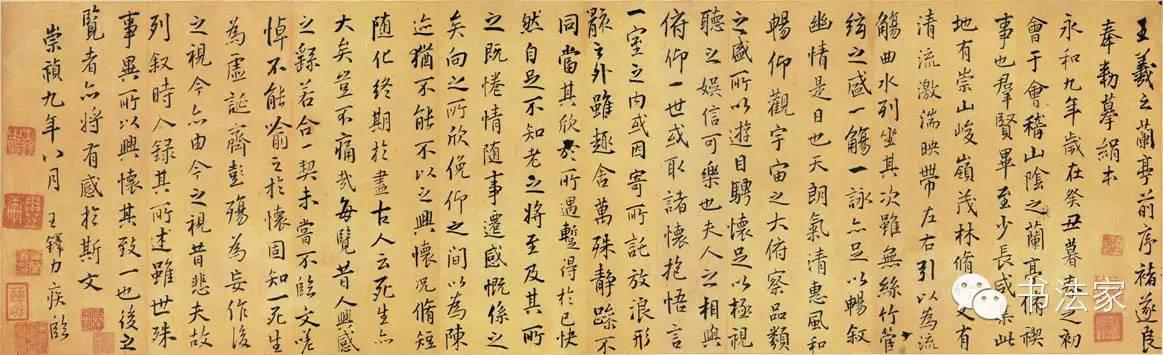 王羲之蘭亭前序褚遂良
奉勑摹絹本
永和九年歲在癸丑暮春之初
會于會稽山陰之蘭亭脩禊
事也羣賢畢至少長咸集此
地有崇山峻嶺茂林脩竹又有
清流激湍映帶左右引以為流
觴曲水列坐其次雖無絲竹管
絃之盛一觴一詠亦足以暢敘
幽情是日也天朗氣清惠風和
暢仰觀宇宙之大俯察品類
之盛所以遊目騁懷足以極視
聽之娛信可樂也夫人之相與
俯仰一世或取諸懷抱悟言
一室之內或因寄所託放浪形
骸之外雖趣舍萬殊静躁不
同當其欣於所遇暫得於己快
然自足不知老之將至及其所
之既惓情随事遷感慨係之
矣向之所欣俛仰之間以為陳
迹猶不能不以之興懷況脩短
随化終期於盡古人云死生亦
大矣豈不痛哉每覽昔人興感
之繇若合一契未嘗不臨文嗟
悼不能喻之於懷固知一死生
為虛誕齊彭殤為妄作後
之視今亦由今之視昔悲夫故
列敘時人錄其所述雖世殊
事異所以興懷其致一也後之
覽者亦將有感於斯文
崇禎九年八月 王鐸力疾臨
书法家